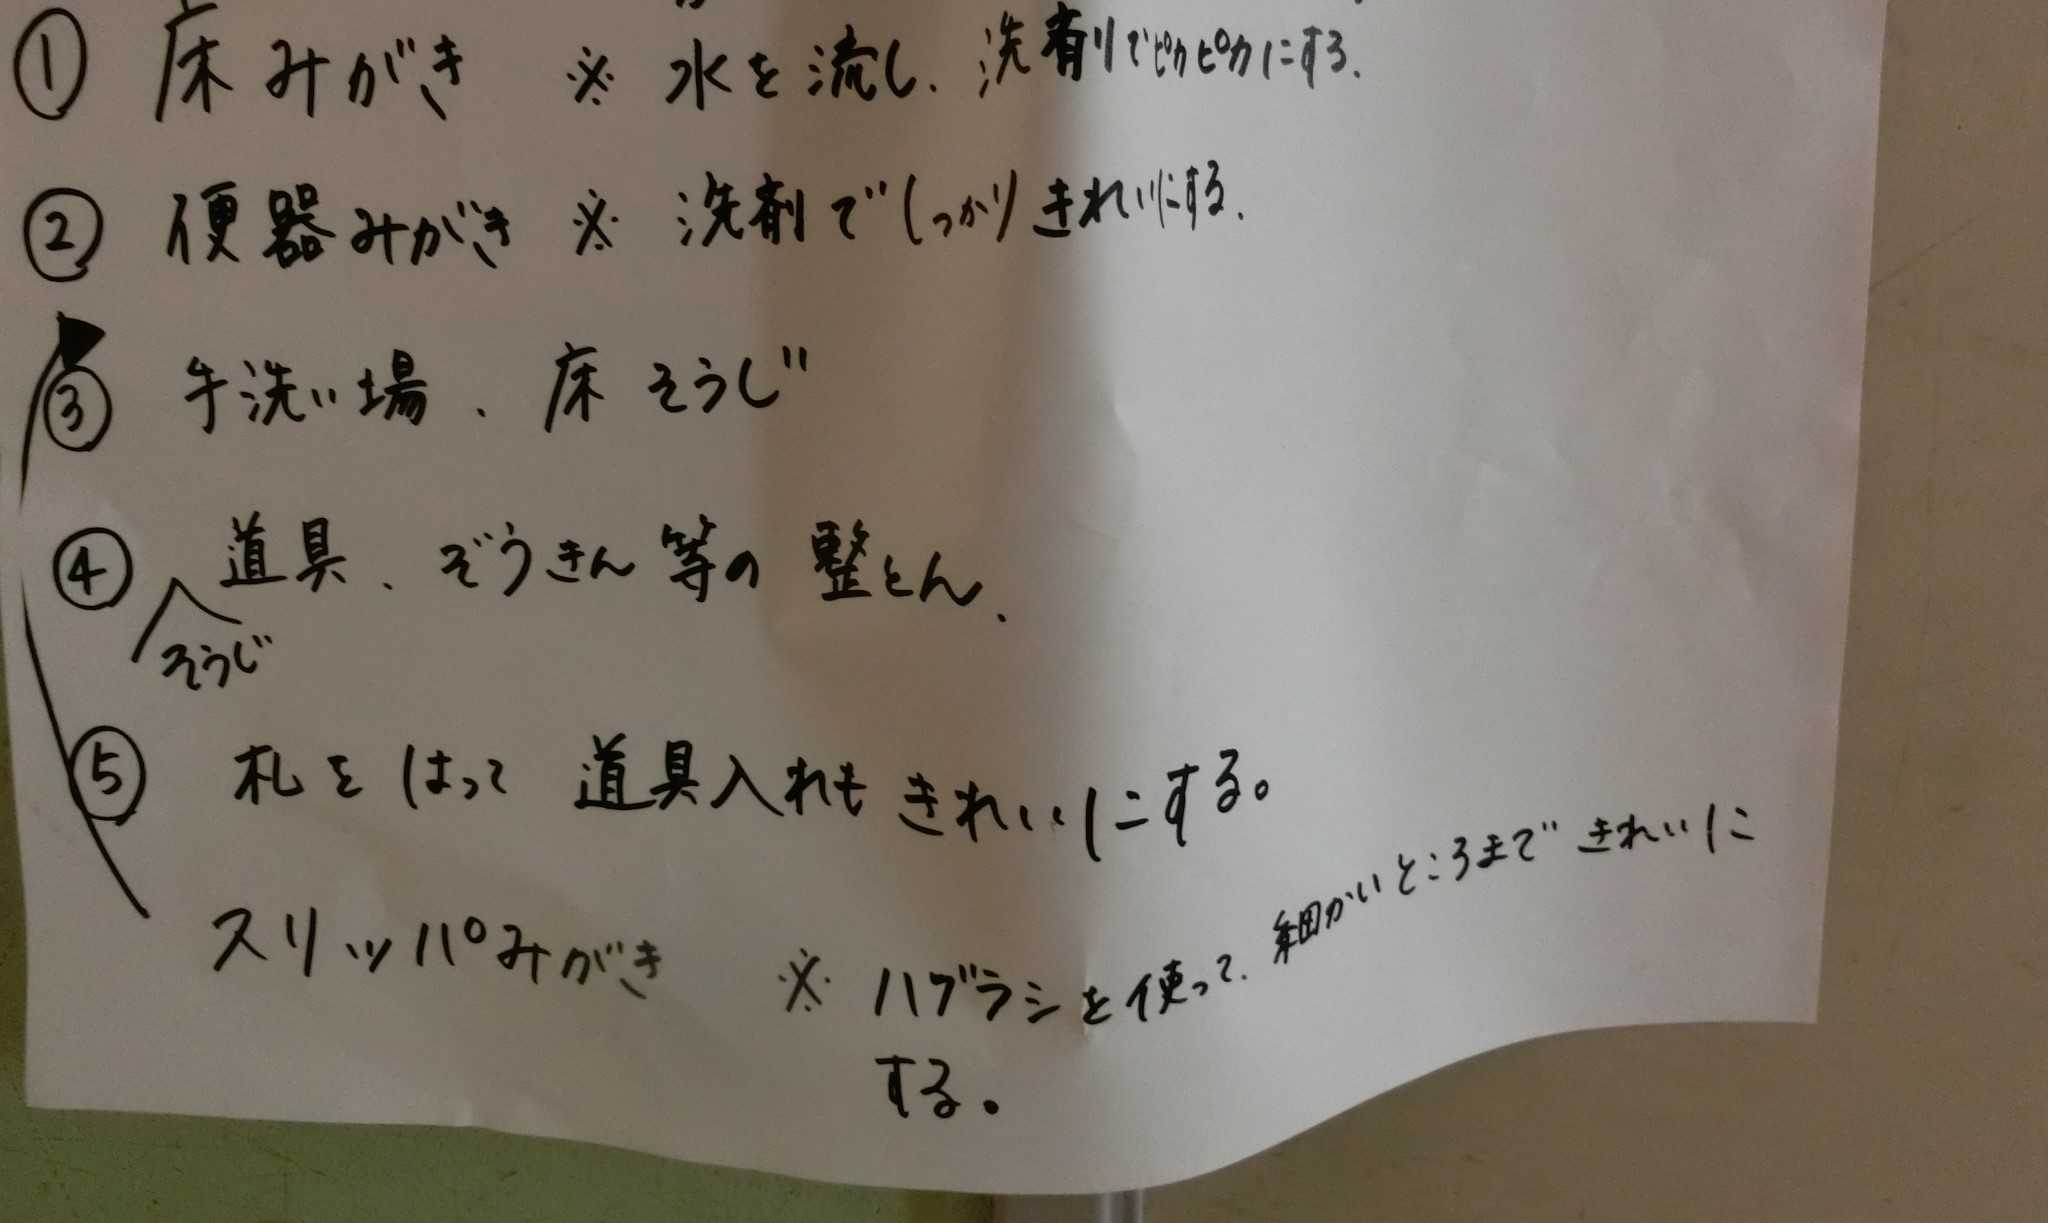 ① 床みがき ※ 水を流し、洗剤でピカピカにする.
② 便器みがき ※ 洗剤でしっかりきれいにする.
③ 手洗い場、床そうじ
④ 道具、ぞうきん等の整とん.
そうじ
⑤ 札をはって道具入れもきれいにする。
スリッパみがき ※ ハブラシを使って、細かいところまできれいに
する。